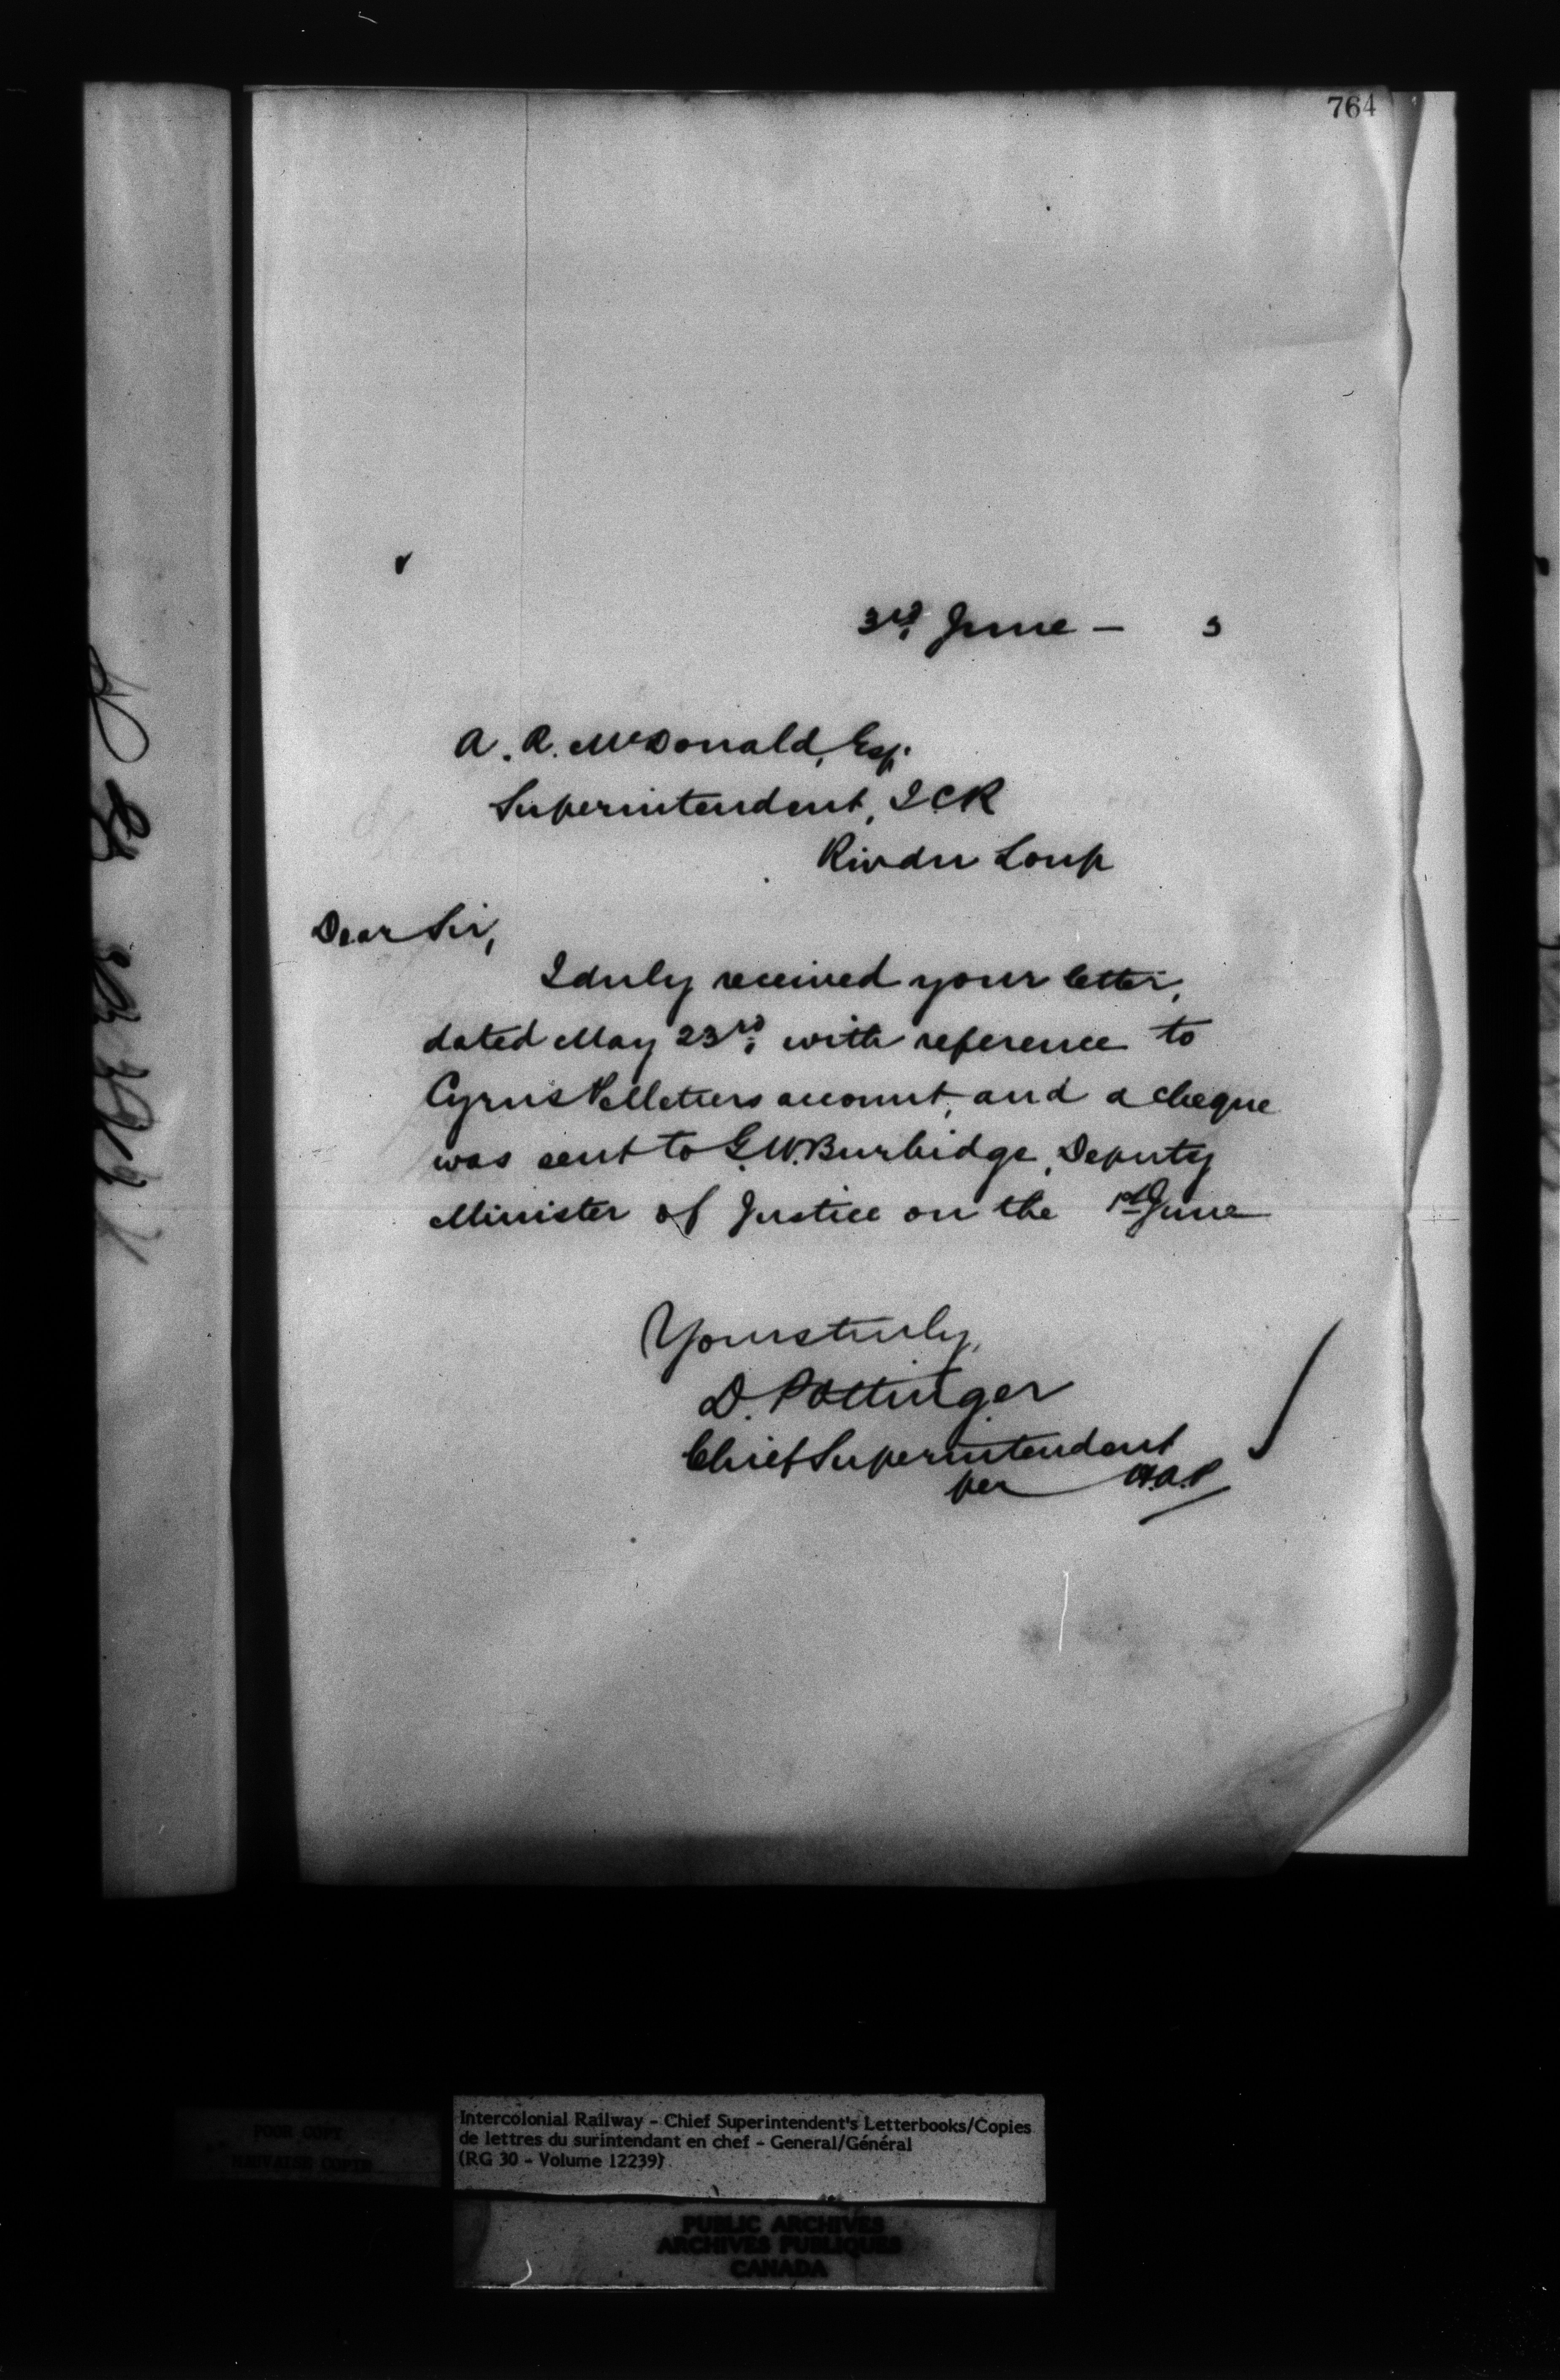 764
3rd June — 3
A. R. McDonald, Esq.
Superintendent, ICR
Riv du Loup
Dear Sir,
I duly received your letter,
dated May 23rd, with reference to
Cyrus Pelletiers account, and a cheque
was sent to G.W. Burbidge, Deputy
Minister of Justice on the 1st June
Yours truly,
D. Pottinger
Chief Superintendent
per H.A.P
POOR COPY
MAUVAISE COPIE
Intercolonial Railway - Chief Superintendent's Letterbooks/Copies
de lettres du surintendant en chef - General/Général
(RG 30 - Volume 12239)
PUBLIC ARCHIVES
ARCHIVES PUBLIQUES
CANADA